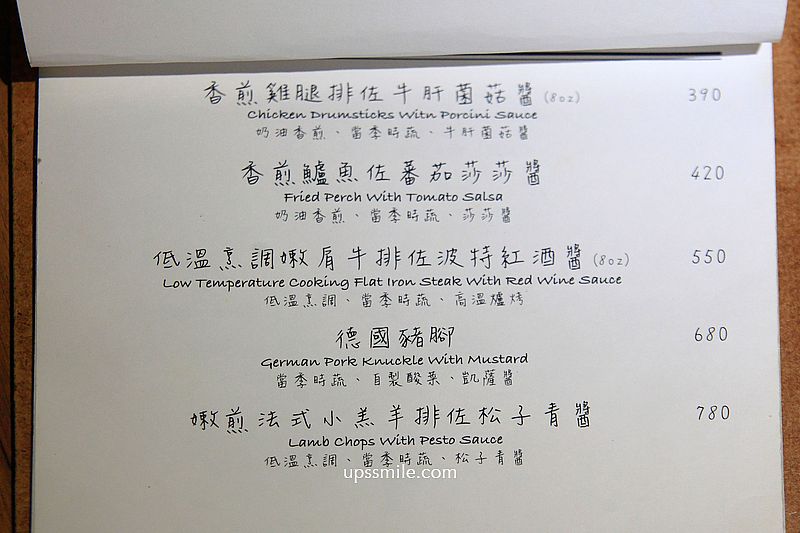 香煎雞腿排佐牛肝菌菇醬(8oz) 390
Chicken Drumsticks Witn Porcini Sauce
奶油香煎、當季時蔬、牛肝菌菇醬
香煎鱸魚佐蕃茄莎莎醬 420
Fried Perch With Tomato Salsa
奶油香煎、當季時蔬、莎莎醬
低溫烹調嫩肩牛排佐波特紅酒醬(8oz) 550
Low Temperature Cooking Flat Iron Steak With Red Wine Sauce
低溫烹調、當季時蔬、高溫爐烤
德國豬腳 680
German Pork Knuckle With Mustard
當季時蔬、自製酸菜、凱薩醬
嫩煎法式小羔羊排佐松子青醬 780
Lamb Chops With Pesto Sauce
低溫烹調、當季時蔬、松子青醬
upssmile.com